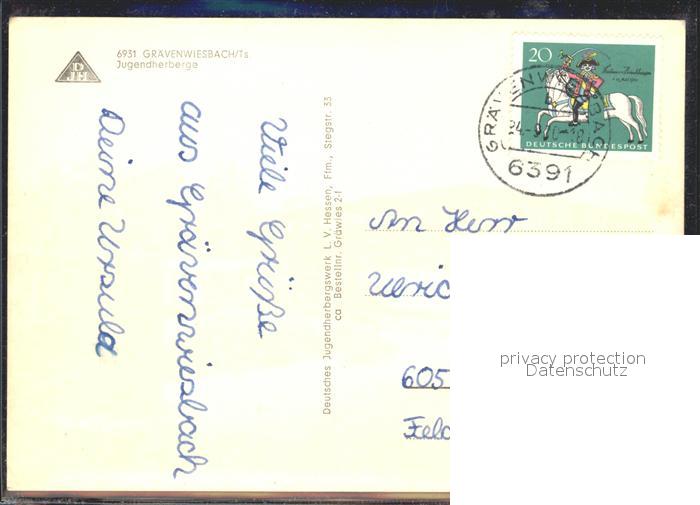 6931 GRÄVENWIESBACH/Ts
Jugendherberge
DJH
Viele Grüße
aus Grävenwiesbach
Deine Ursula
Deutsches Jugendherbergswerk L. V. Hessen, Ffm., Stegstr. 33
ca Bestellnr. Gräwies 2-f
20
DEUTSCHE BUNDESPOST
GRÄVENWIESBACH
6391
An Herr
Ulric
605
Feld
privacy protection
Datenschutz